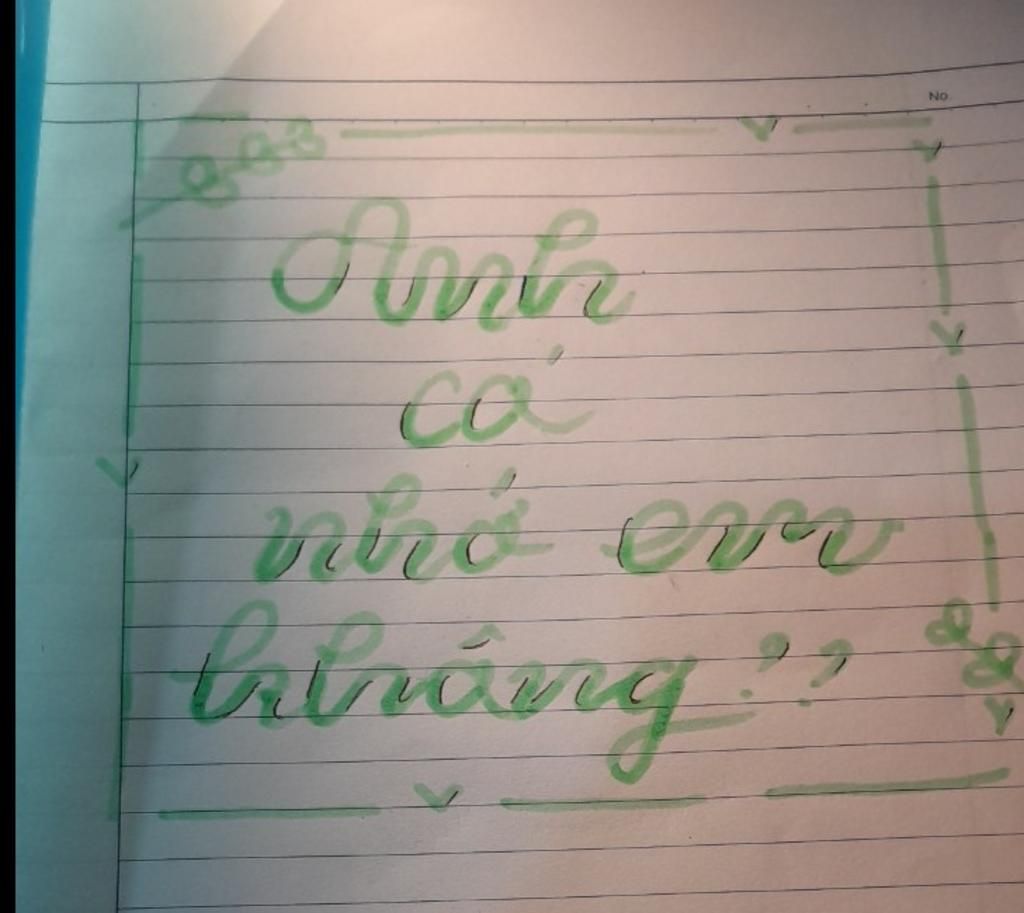 No
Anh
có
nhớ em
không??